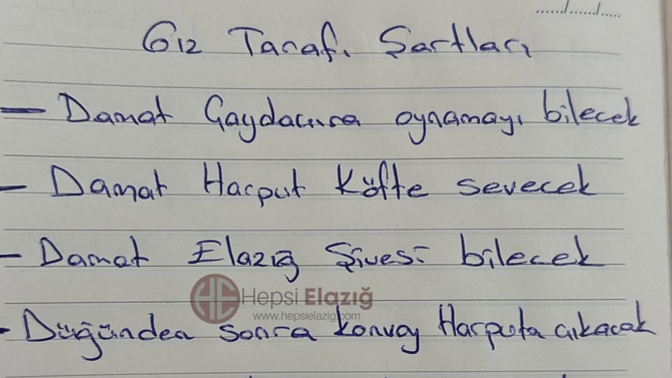 ...../...../.....
Gız Taraf. Şartları
- Damat Gaydacıra oynamayı bilecek
- Damat Harput Köfte sevecek
- Damat Elazığ Şivesi bilecek
Hepsi Elazığ
www.hepsielazig.com
- Düğünden sonra konvoy Harputa çıkacak